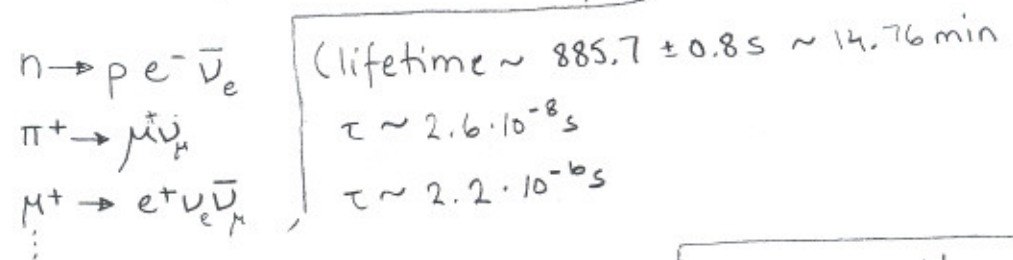 n → p e⁻ ν̄ₑ (lifetime ~ 885.7 ± 0.8 s ~ 14.76 min
π⁺ → μ⁺ν_μ τ ~ 2.6·10⁻⁸s
μ⁺ → e⁺νₑν̄_μ τ ~ 2.2·10⁻⁶s
⋮